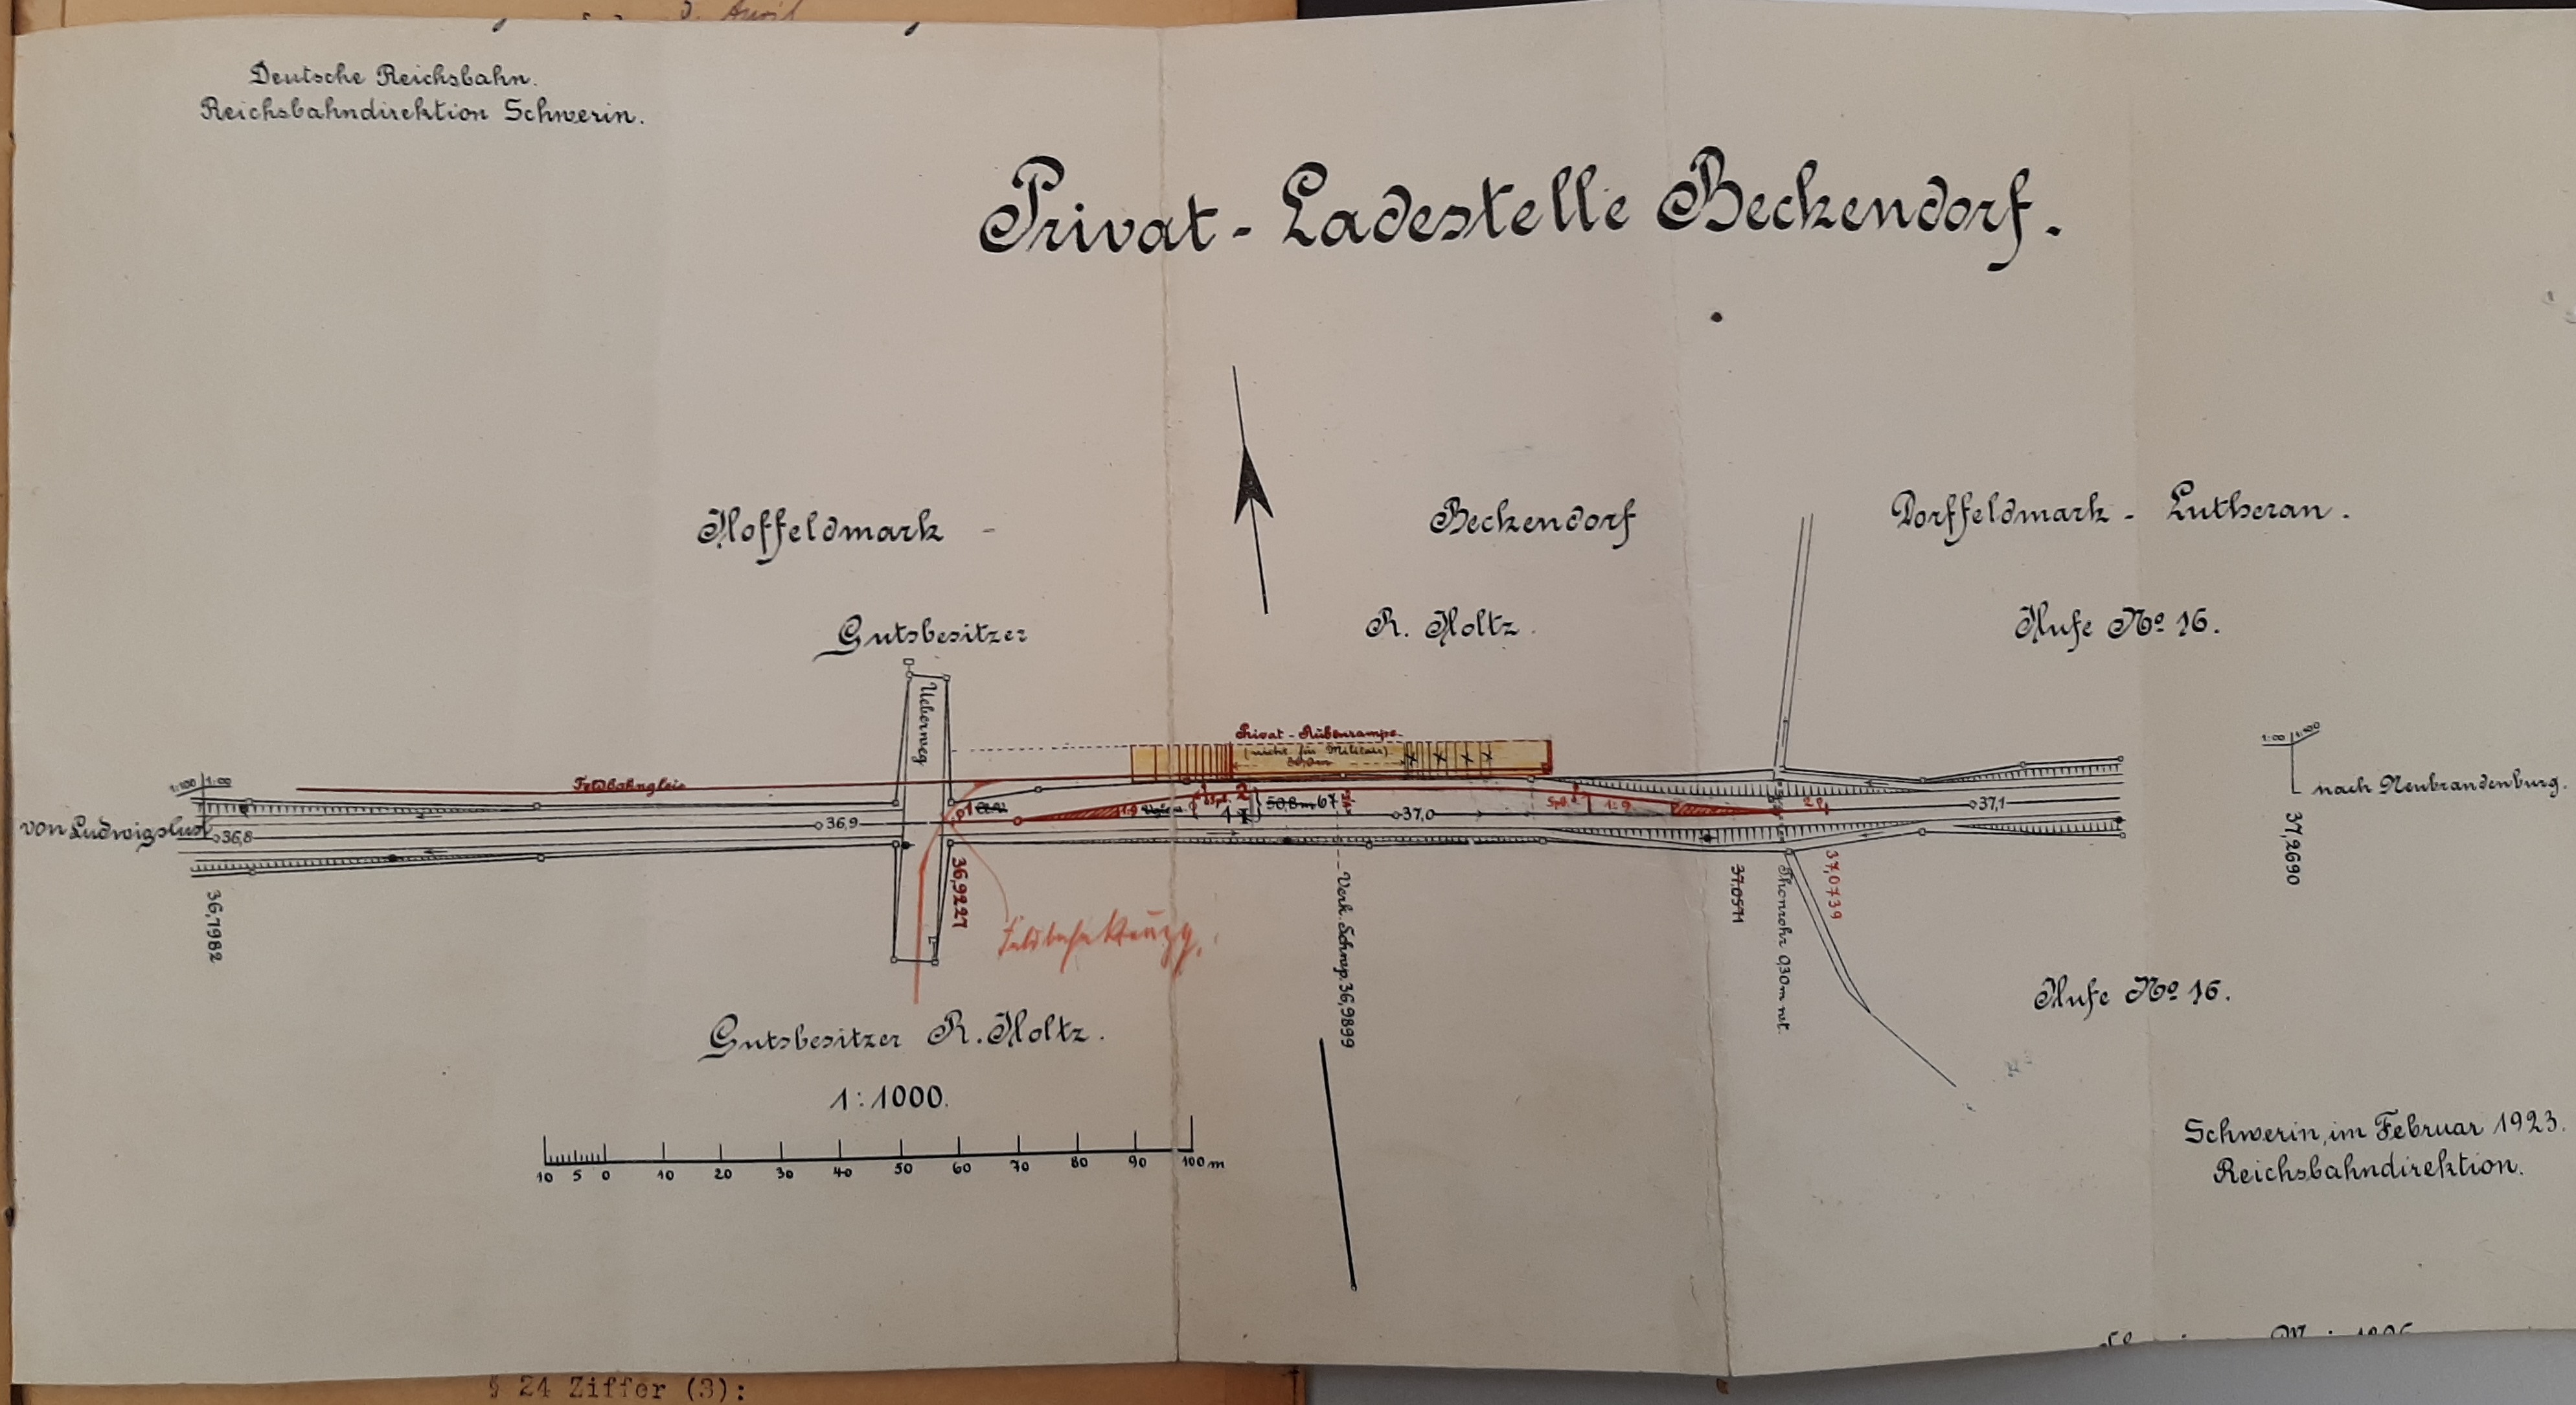 Deutsche Reichsbahn.
Reichsbahndirektion Schwerin.
Privat-Ladestelle Beckendorf.
Hoffeldmark - Beckendorf
Dorffeldmark - Lutheran.
Gutsbesitzer R. Holtz.
Hufe No 16.
Ueberweg
Privat-Rübenrampe
(nicht für Militär)
Feldbahngleis
1:∞
1:∞
von Ludwigslust
36,8
36,9
50,8m 67
37,0
1:9
37,1
nach Neubrandenburg.
36,7982
36,9227
37,0571
Thonrohr 0,30m wt.
37,0739
37,2690
Feldbahnkreuzg.
Gutsbesitzer R. Holtz.
Hufe No 16.
1:1000.
10 5 0 10 20 30 40 50 60 70 80 90 100 m
Schwerin, im Februar 1923.
Reichsbahndirektion.
§ 24 Ziffer (3):